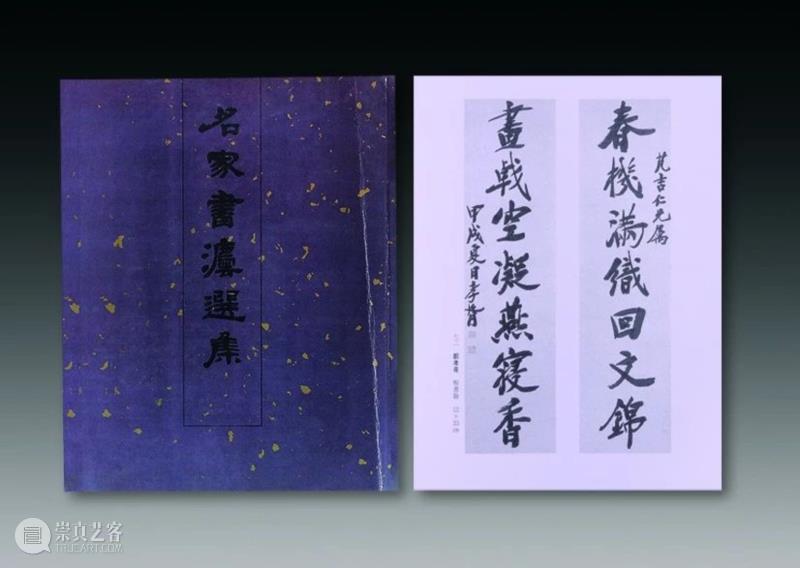 名家書灋選集
春機滿織回文錦
芃吉仁兄屬
畫戟空凝燕寢香
甲戌月孝胥
鄭孝胥
崇真艺客
TRUEART.COM